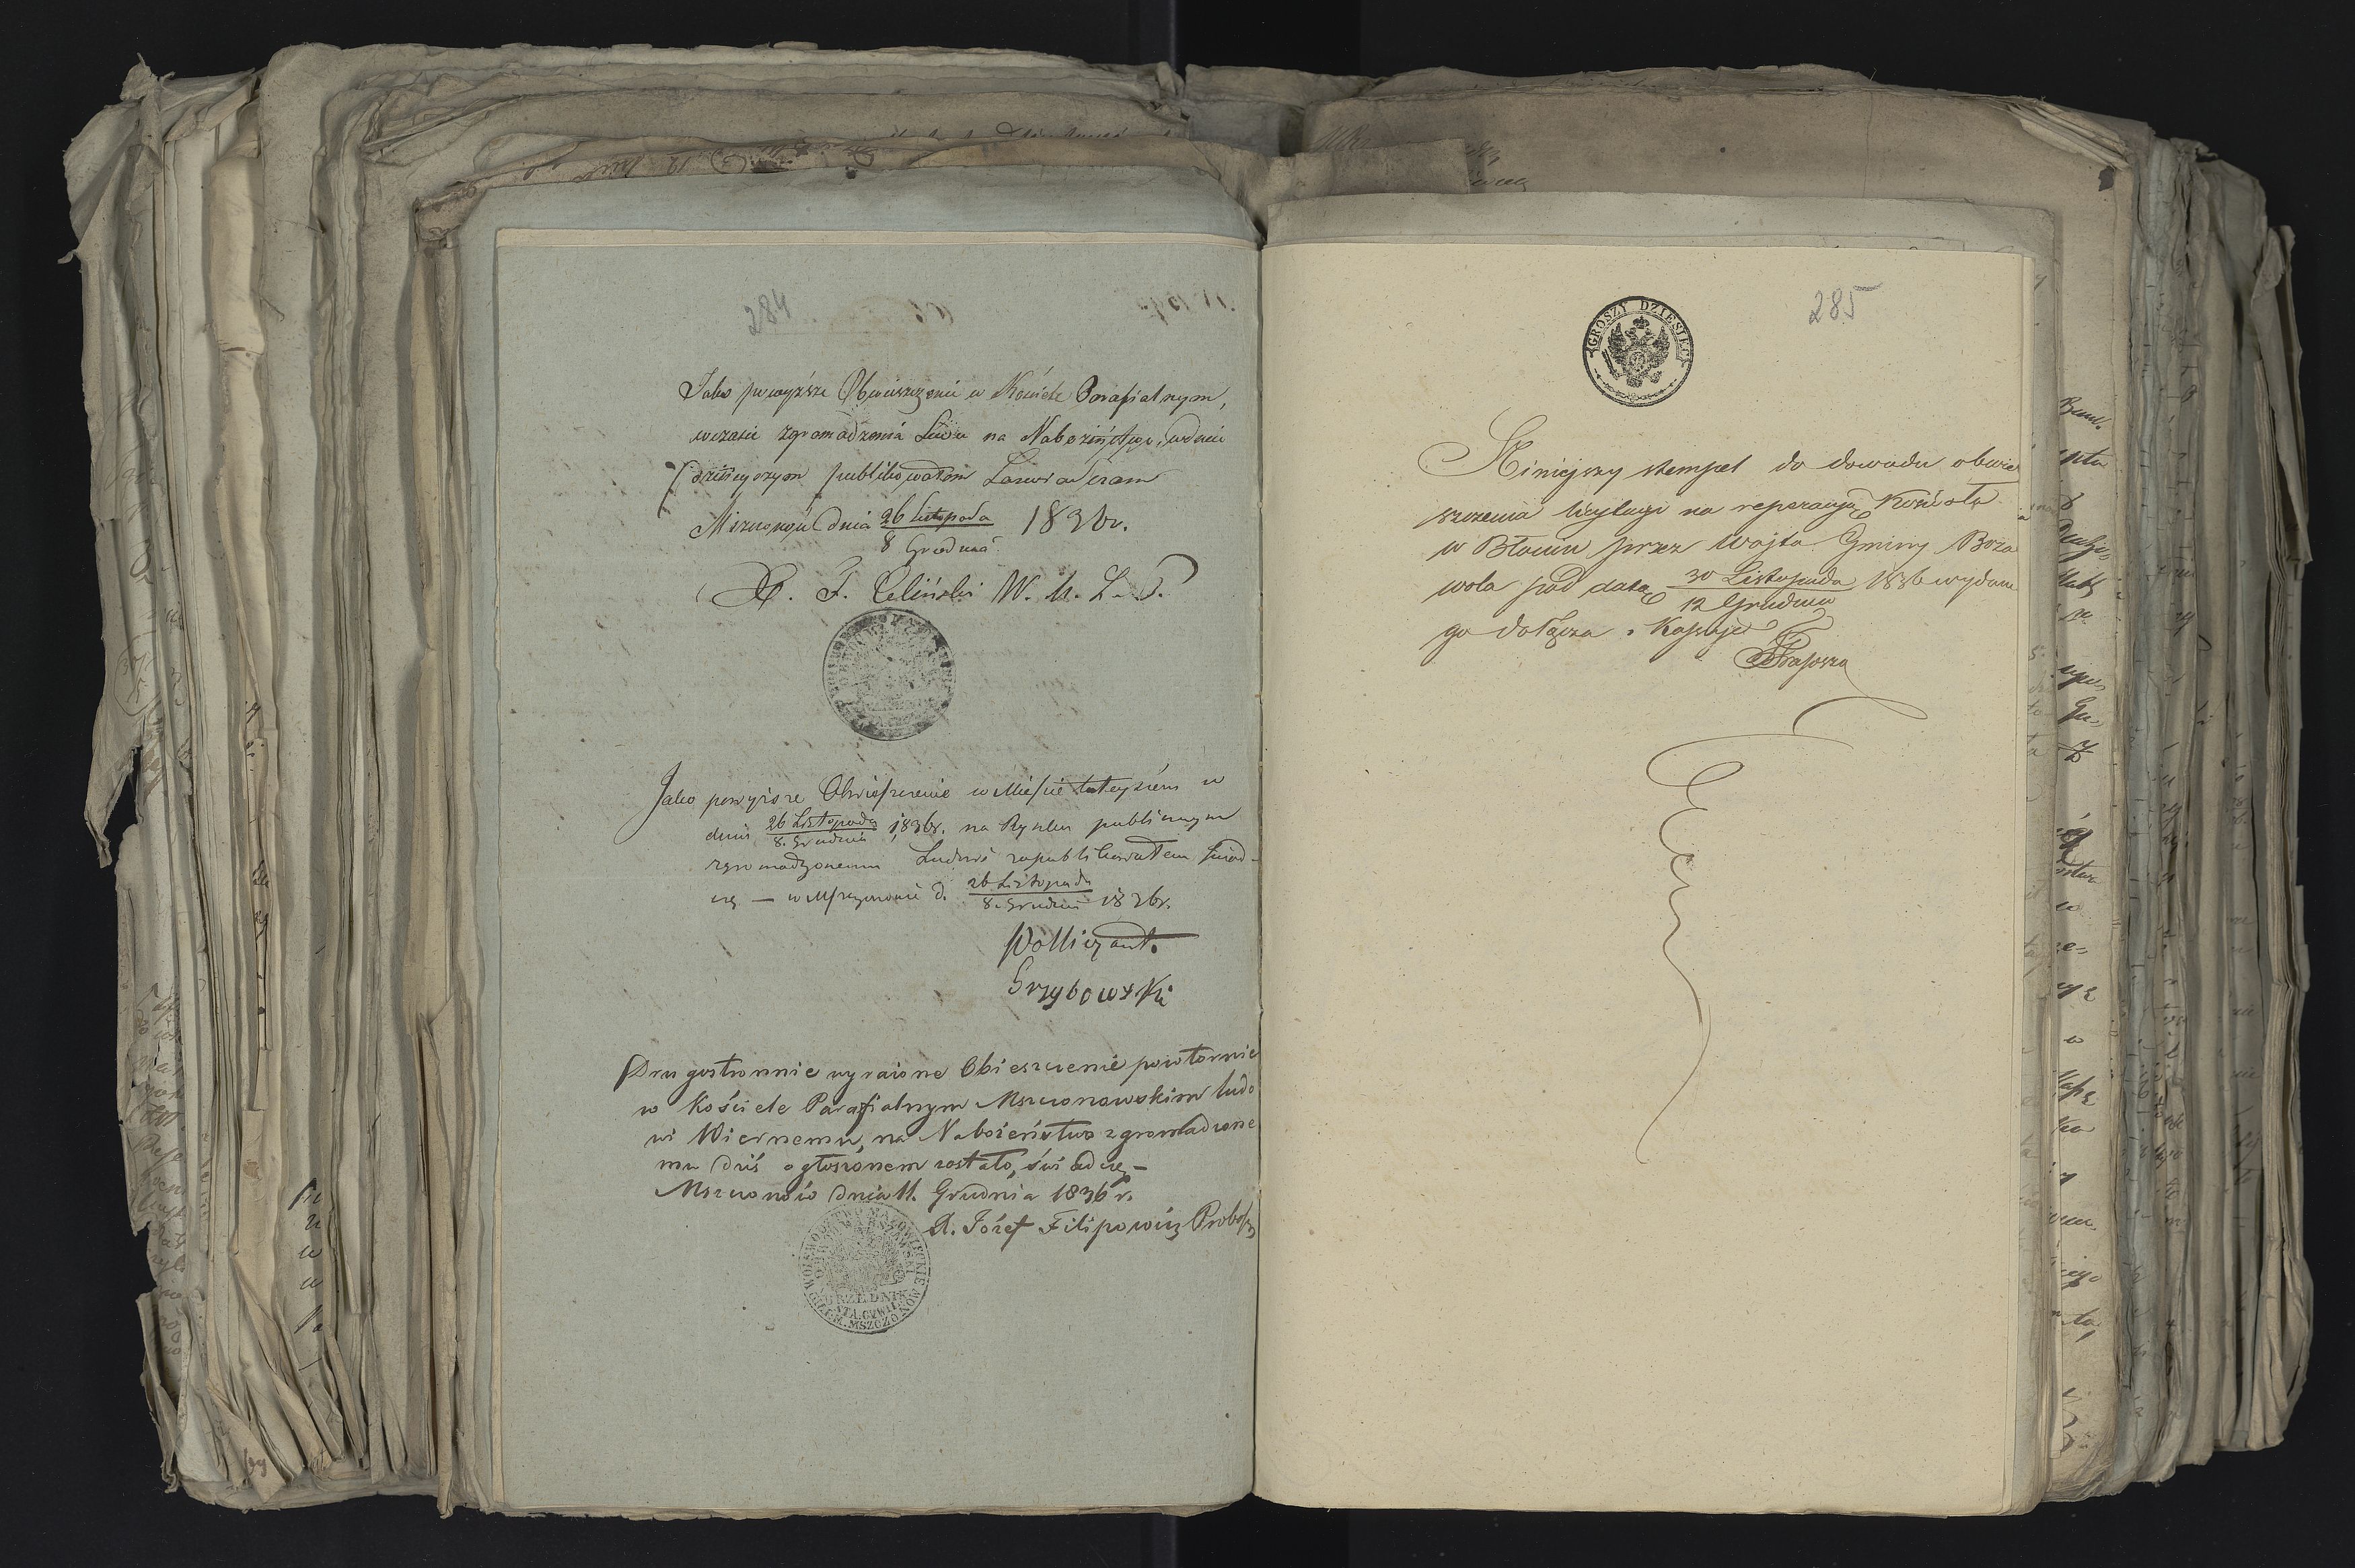 284
Jako powyższe Obwieszczenie w Kościele Parafialnym,
wczasie zgromadzenia Ludu na Nabożeństwo, wdniu
dzisieyszym publikowałem Zaswiadczam
Mszczonow dnia 26 Listopada / 8 Grudnia 1836r.
X. J. Celiński W. K. L. P.
Jako powyższe Obwieszczenie w Mieście tuteyszem w
dniu 26 Listopada / 8. Grudnia 1836r. na Rynku publicznym
zgromadzonemu Ludowi zapublikowałem świad-
czę — w Mszczonowie d. 26 Listopada / 8. Grudnia 1836r.
Pollicyant.
Grzybowski
Drugostronnie wyrażone Obieszczenie powtornie
w Kościele Parafialnym Mszczonowskim ludo
wi Wiernemu, na Nabożeństwo zgromadzone
mu dziś ogłoszonem zostało, świadczę —
Mszczonów dnia 11. Grudnia 1836 r.
X. Józef Filipowicz Proboszcz
WOJEWODZTWO MAZOWIECKIE
OBWOD WARSZAWSKI
URZEDNIK
STA. CYWIL.
GM. MSZCZONOW
285
GROSZY DZIESIĘĆ
Niniejszy stempel do dowodu obwie
szczenia licytacyi na reperacyą Kościoła
w Błoniu przez Wójta Gminy Boża
wola pod datą 30 Listopada / 12 Grudnia 1836 wydane
go dołącza i Kassuje